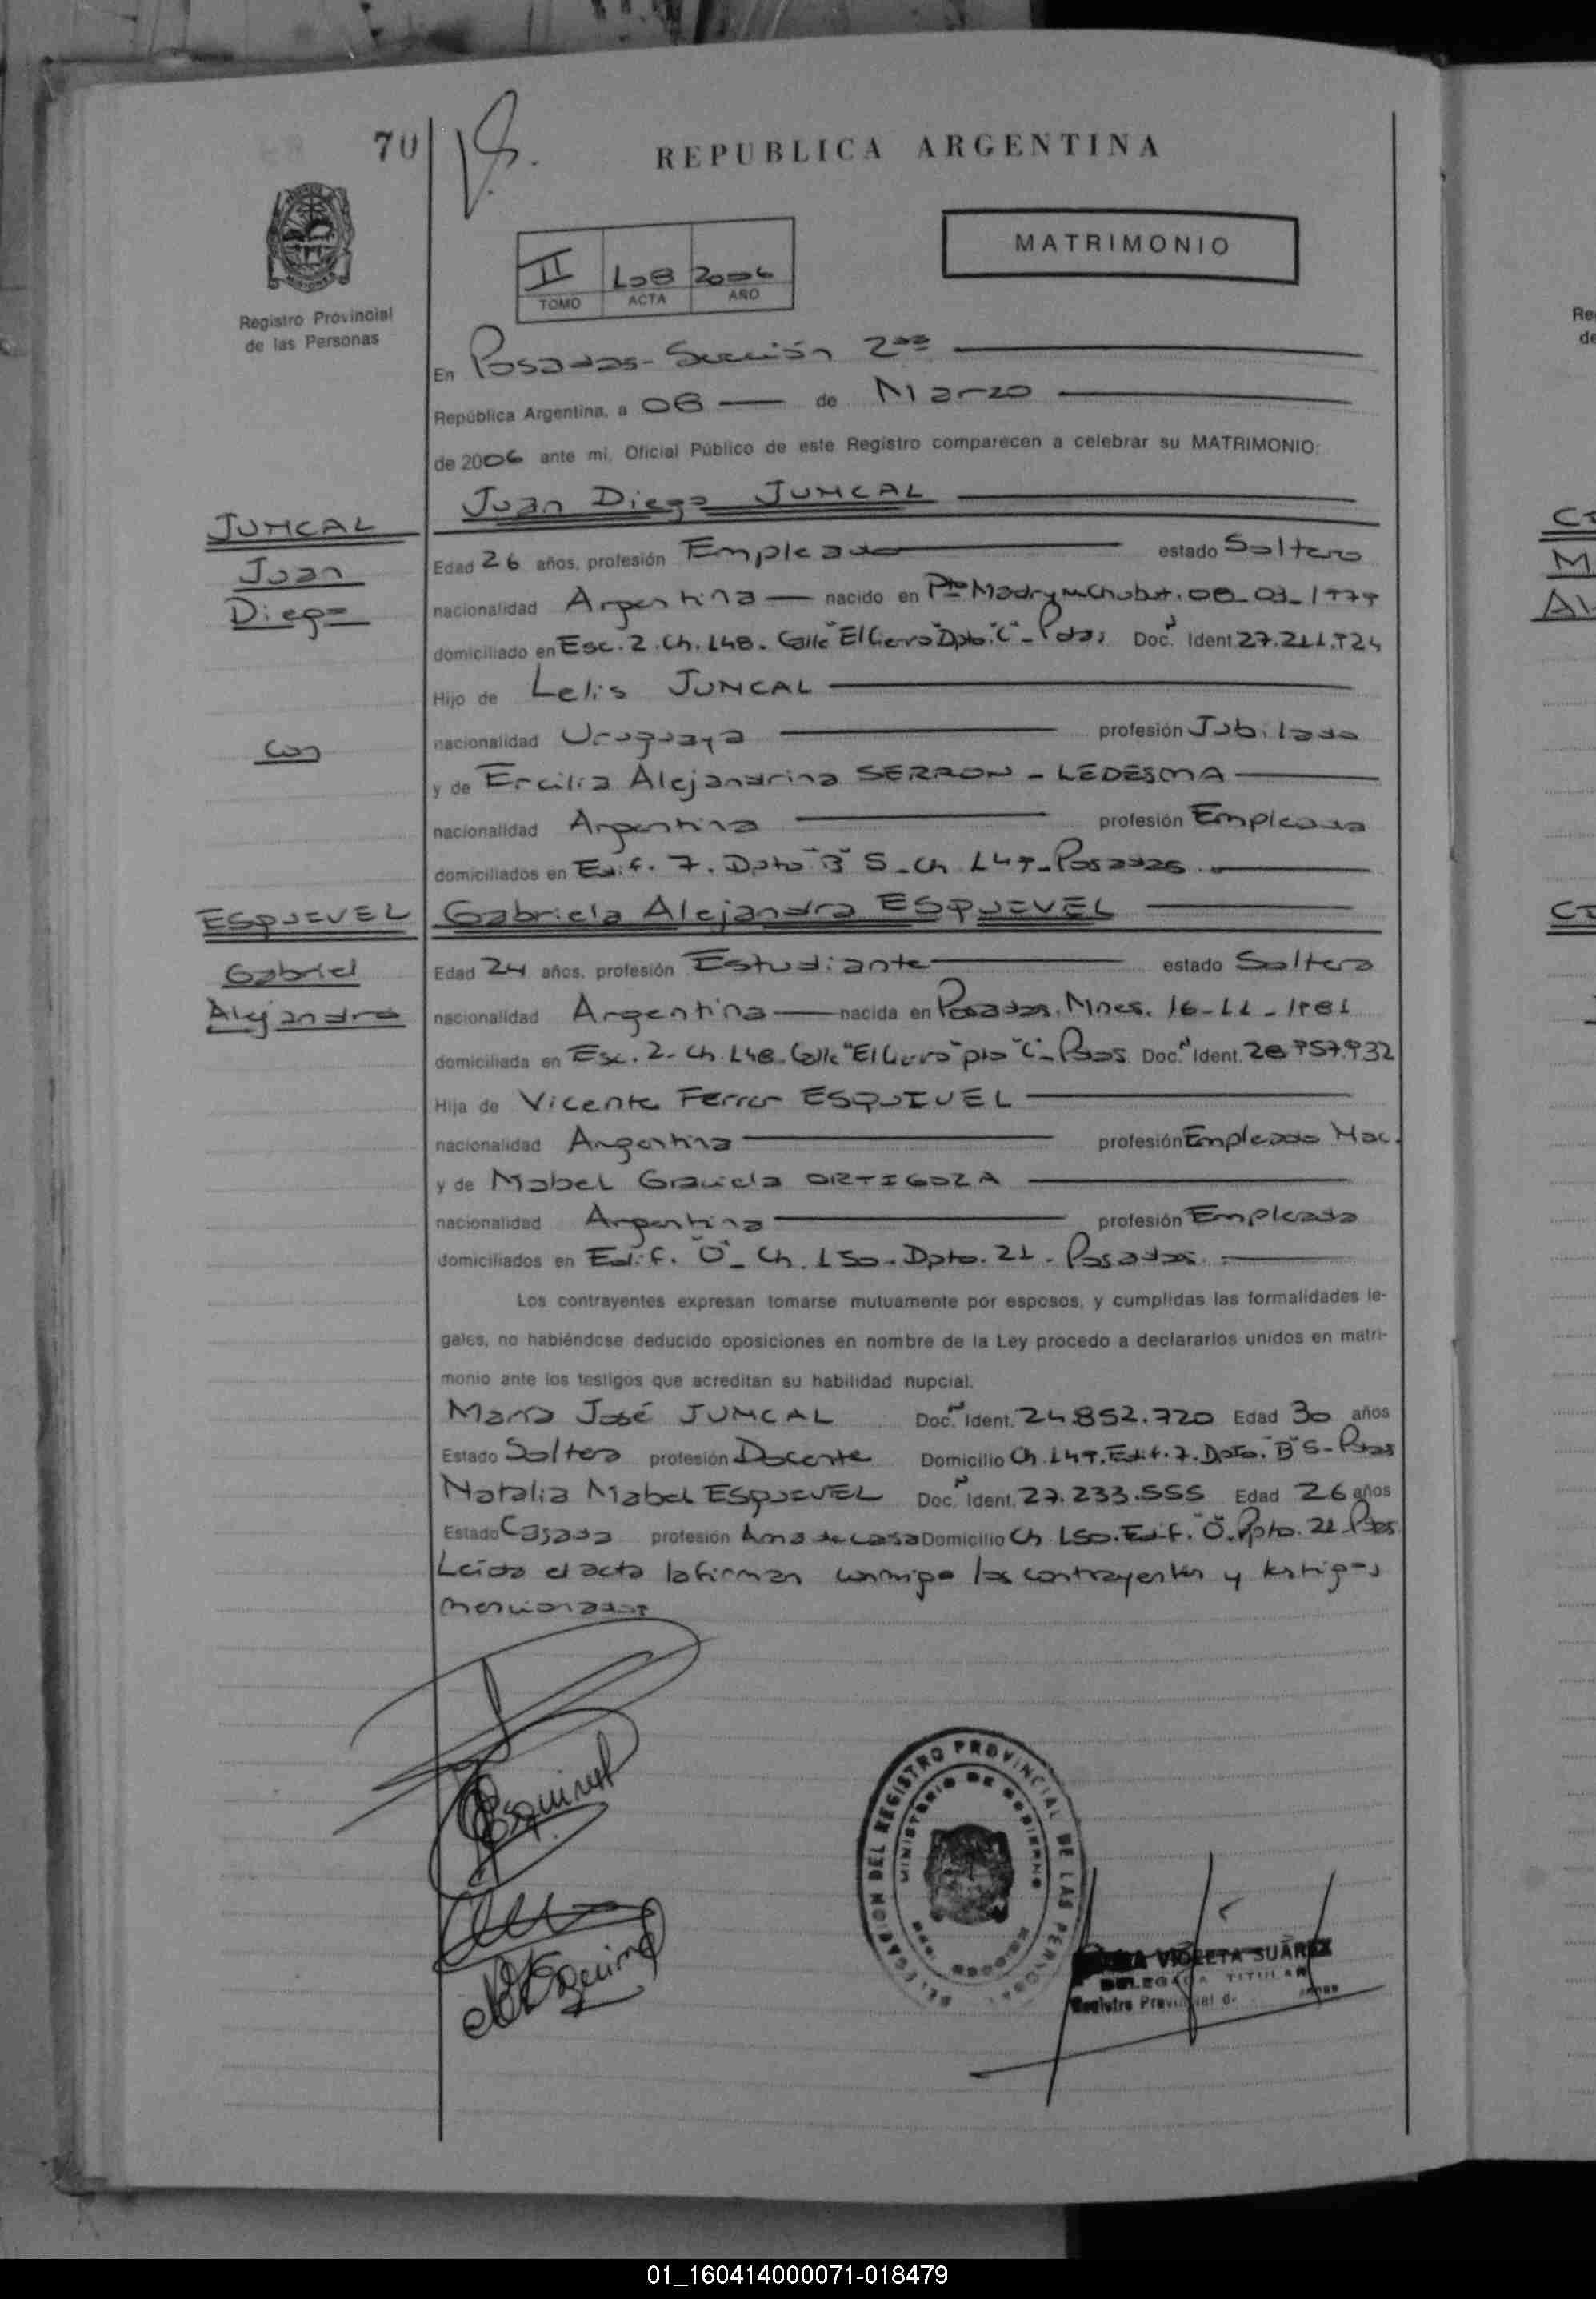 70
REPUBLICA ARGENTINA
MATRIMONIO
II 108 2006
TOMO ACTA AÑO
Registro Provincial
de las Personas
En Posadas - Sección 2da
República Argentina, a 08 de Marzo
de 2006 ante mi, Oficial Público de este Registro comparecen a celebrar su MATRIMONIO:
Juan Diego JUNCAL
JUNCAL
Juan
Diego
Edad 26 años, profesión Empleado estado Soltero
nacionalidad Argentina nacido en Pto Madryn Chubut. 08-03-1979
domiciliado en Esc. 2. Ch. 148. Calle "El Cierro" Dpto. "C" - Pdas Doc. Ident. 27.211.924
Hijo de Lelis JUNCAL
nacionalidad Uruguaya profesión Jubilado
con
y de Ercilia Alejandrina SERRON - LEDESMA
nacionalidad Argentina profesión Empleada
domiciliados en Edif. 7. Dpto "B" S - Ch 149 - Posadas
ESQUIVEL
Gabriela Alejandra ESQUIVEL
Gabriel
Alejandra
Edad 24 años, profesión Estudiante estado Soltera
nacionalidad Argentina nacida en Posadas, Mnes. 16-11-1981
domiciliada en Esc. 2. Ch. 148. Calle "El Cierro" pto "C" - Pdas Doc. Ident. 28.957.932
Hija de Vicente Ferrer ESQUIVEL
nacionalidad Argentina profesión Empleado Nac.
y de Mabel Graciela ORTIGOZA
nacionalidad Argentina profesión Empleada
domiciliados en Edif. "O" - Ch. 150 - Dpto. 21 - Posadas
Los contrayentes expresan tomarse mutuamente por esposos, y cumplidas las formalidades le-
gales, no habiéndose deducido oposiciones en nombre de la Ley procedo a declararlos unidos en matri-
monio ante los testigos que acreditan su habilidad nupcial.
María José JUNCAL Doc. Ident. 24.852.720 Edad 30 años
Estado Soltera profesión Docente Domicilio Ch. 149. Edif. 7. Dpto. "B" S - Pdas
Natalia Mabel ESQUIVEL Doc. Ident. 27.233.555 Edad 26 años
Estado Casada profesión Ama de casa Domicilio Ch 150. Edif. "O". Dpto. 21 - Pdas
Leída el acta la firman conmigo los contrayentes y testigos
mencionados
Esquivel
DELEGACION DEL REGISTRO PROVINCIAL DE LAS PERSONAS
MINISTERIO DE GOBIERNO
VIOLETA SUAREZ
DELEGADA TITULAR
Registro Provincial de
01_160414000071-018479